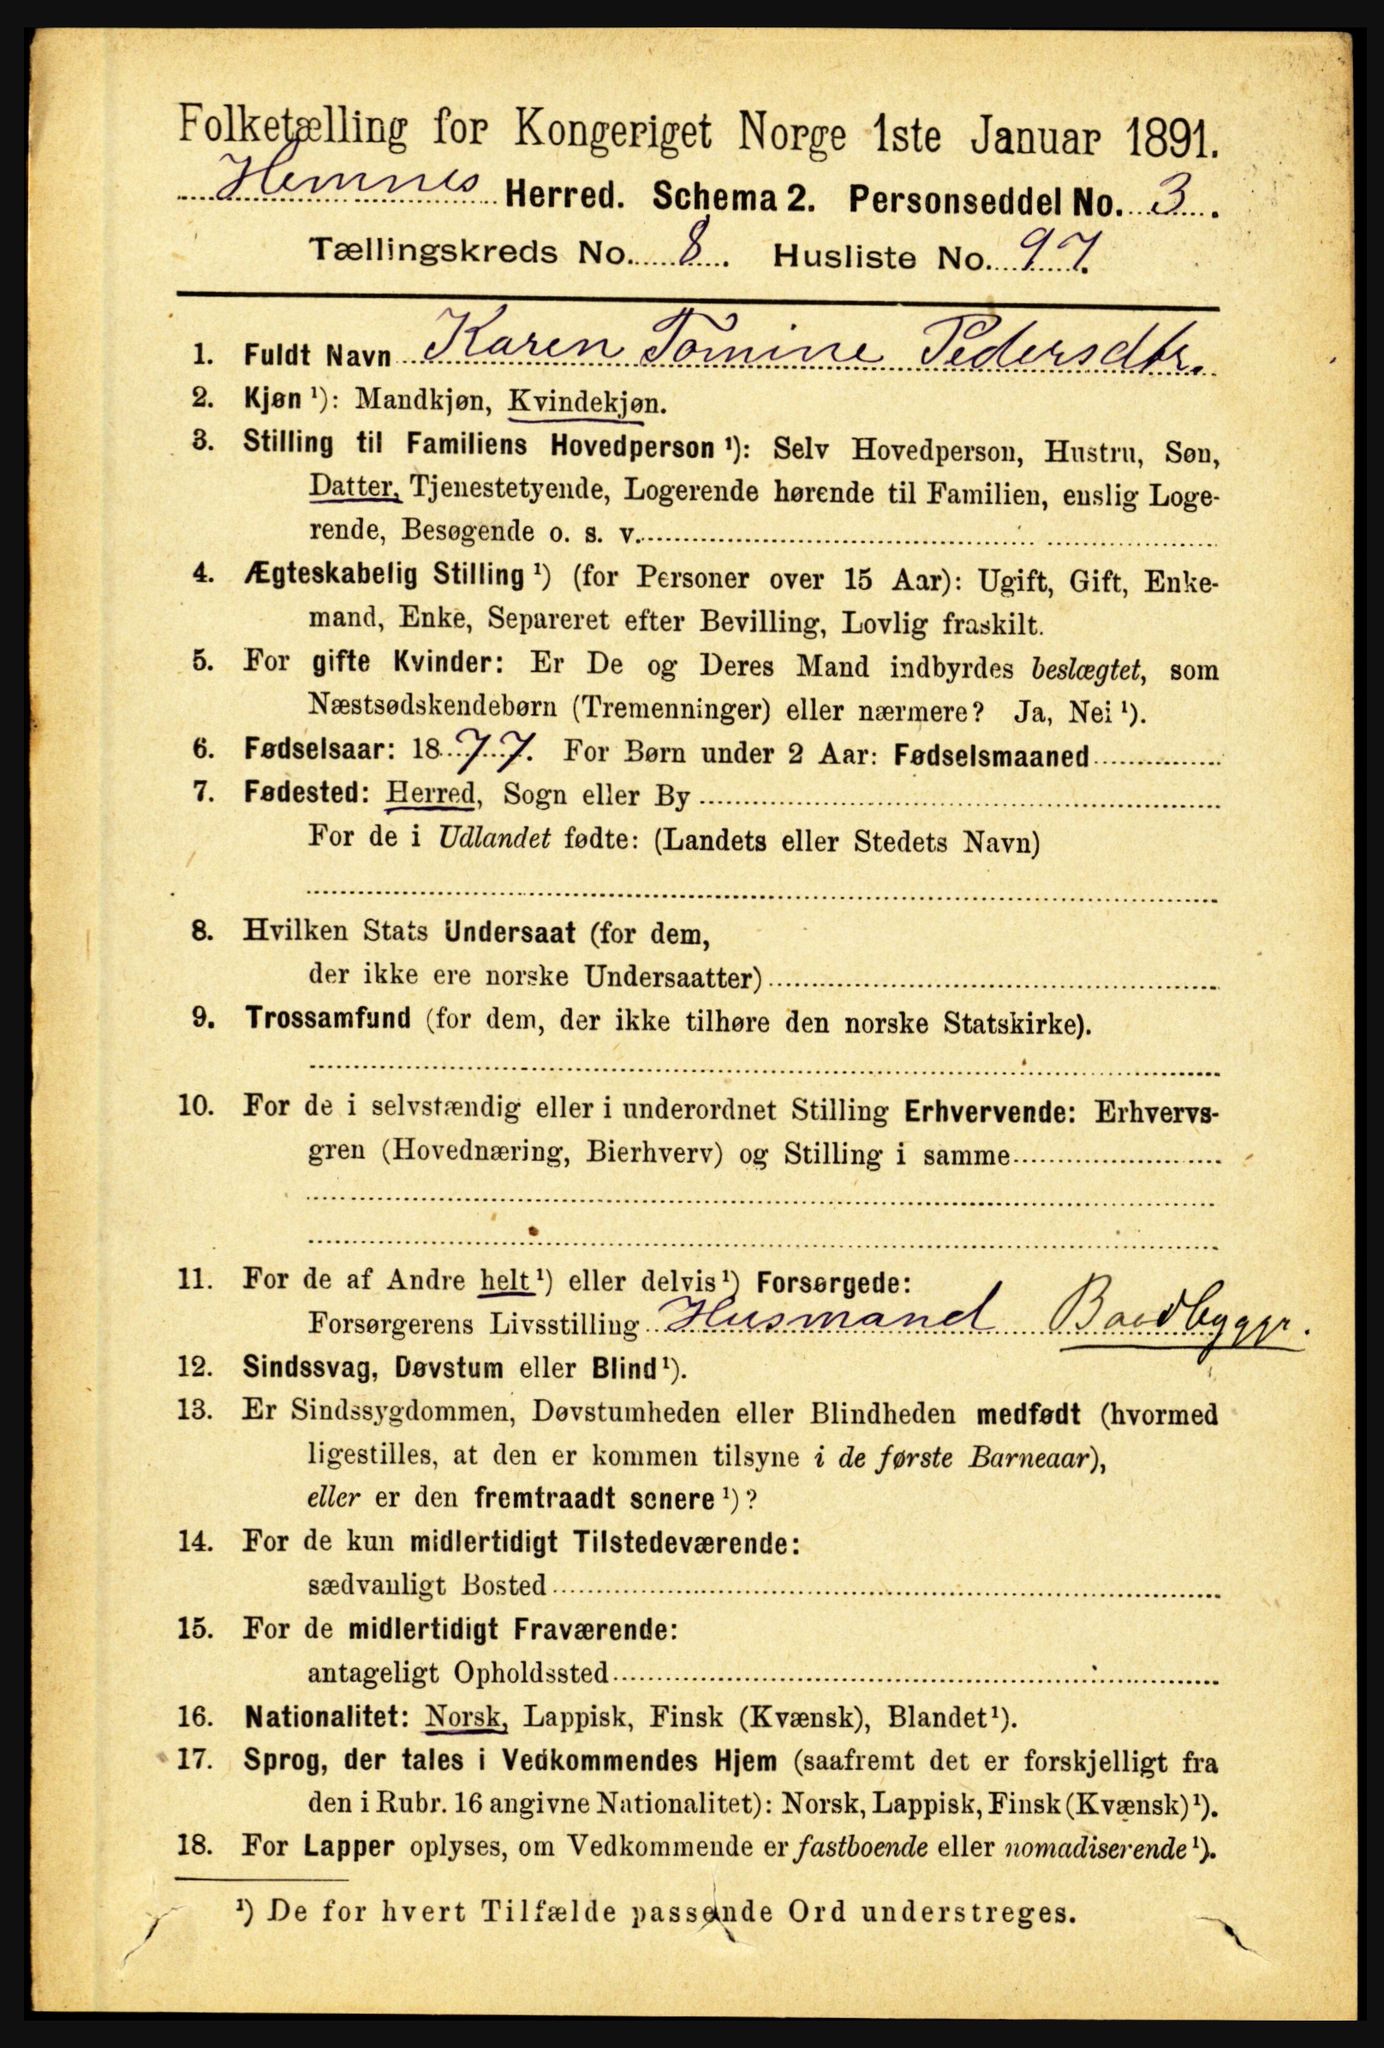 Folketælling for Kongeriget Norge 1ste Januar 1891.
Hemnes Herred. Schema 2. Personseddel No. 3.
Tællingskreds No. 8. Husliste No. 97.
1. Fuldt Navn Karen Tomine Pedersdtr.
2. Kjøn ¹): Mandkjøn, Kvindekjøn.
3. Stilling til Familiens Hovedperson ¹): Selv Hovedperson, Hustru, Søn,
Datter, Tjenestetyende, Logerende hørende til Familien, enslig Loge-
rende, Besøgende o. s. v.
4. Ægteskabelig Stilling ¹) (for Personer over 15 Aar): Ugift, Gift, Enke-
mand, Enke, Separeret efter Bevilling, Lovlig fraskilt.
5. For gifte Kvinder: Er De og Deres Mand indbyrdes beslægtet, som
Næstsødskendebørn (Tremenninger) eller nærmere? Ja, Nei ¹).
6. Fødselsaar: 1877. For Børn under 2 Aar: Fødselsmaaned
7. Fødested: Herred, Sogn eller By
For de i Udlandet fødte: (Landets eller Stedets Navn)
8. Hvilken Stats Undersaat (for dem,
der ikke ere norske Undersaatter)
9. Trossamfund (for dem, der ikke tilhøre den norske Statskirke).
10. For de i selvstændig eller i underordnet Stilling Erhvervende: Erhvervs-
gren (Hovednæring, Bierhverv) og Stilling i samme
11. For de af Andre helt ¹) eller delvis ¹) Forsørgede:
Forsørgerens Livsstilling Husmand Baadbyggr.
12. Sindssvag, Døvstum eller Blind ¹).
13. Er Sindssygdommen, Døvstumheden eller Blindheden medfødt (hvormed
ligestilles, at den er kommen tilsyne i de første Barneaar),
eller er den fremtraadt senere ¹)?
14. For de kun midlertidigt Tilstedeværende:
sædvanligt Bosted
15. For de midlertidigt Fraværende:
antageligt Opholdssted
16. Nationalitet: Norsk, Lappisk, Finsk (Kvænsk), Blandet ¹).
17. Sprog, der tales i Vedkommendes Hjem (saafremt det er forskjelligt fra
den i Rubr. 16 angivne Nationalitet): Norsk, Lappisk, Finsk (Kvænsk) ¹).
18. For Lapper oplyses, om Vedkommende er fastboende eller nomadiserende ¹).
¹) De for hvert Tilfælde passende Ord understreges.